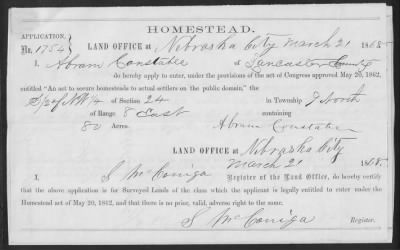 HOMESTEAD.
APPLICATION,
No. 1754
LAND OFFICE at Nebraska City March 21 1868
I, Abram Constable of Lancaster County
do hereby apply to enter, under the provisions of the act of Congress approved May 20, 1862,
entitled "An act to secure homesteads to actual settlers on the public domain," the
S 1/2 of NW 1/4 of Section 24 in Township 7 North
of Range 8 East containing
80 Acres.
Abram Constable
LAND OFFICE at Nebraska City
March 21 1868.
I, S McConiga Register of the Land Office, do hereby certify
that the above application is for Surveyed Lands of the class which the applicant is legally entitled to enter under the
Homestead act of May 20, 1862, and that there is no prior, valid, adverse right to the same.
S McConiga Register.